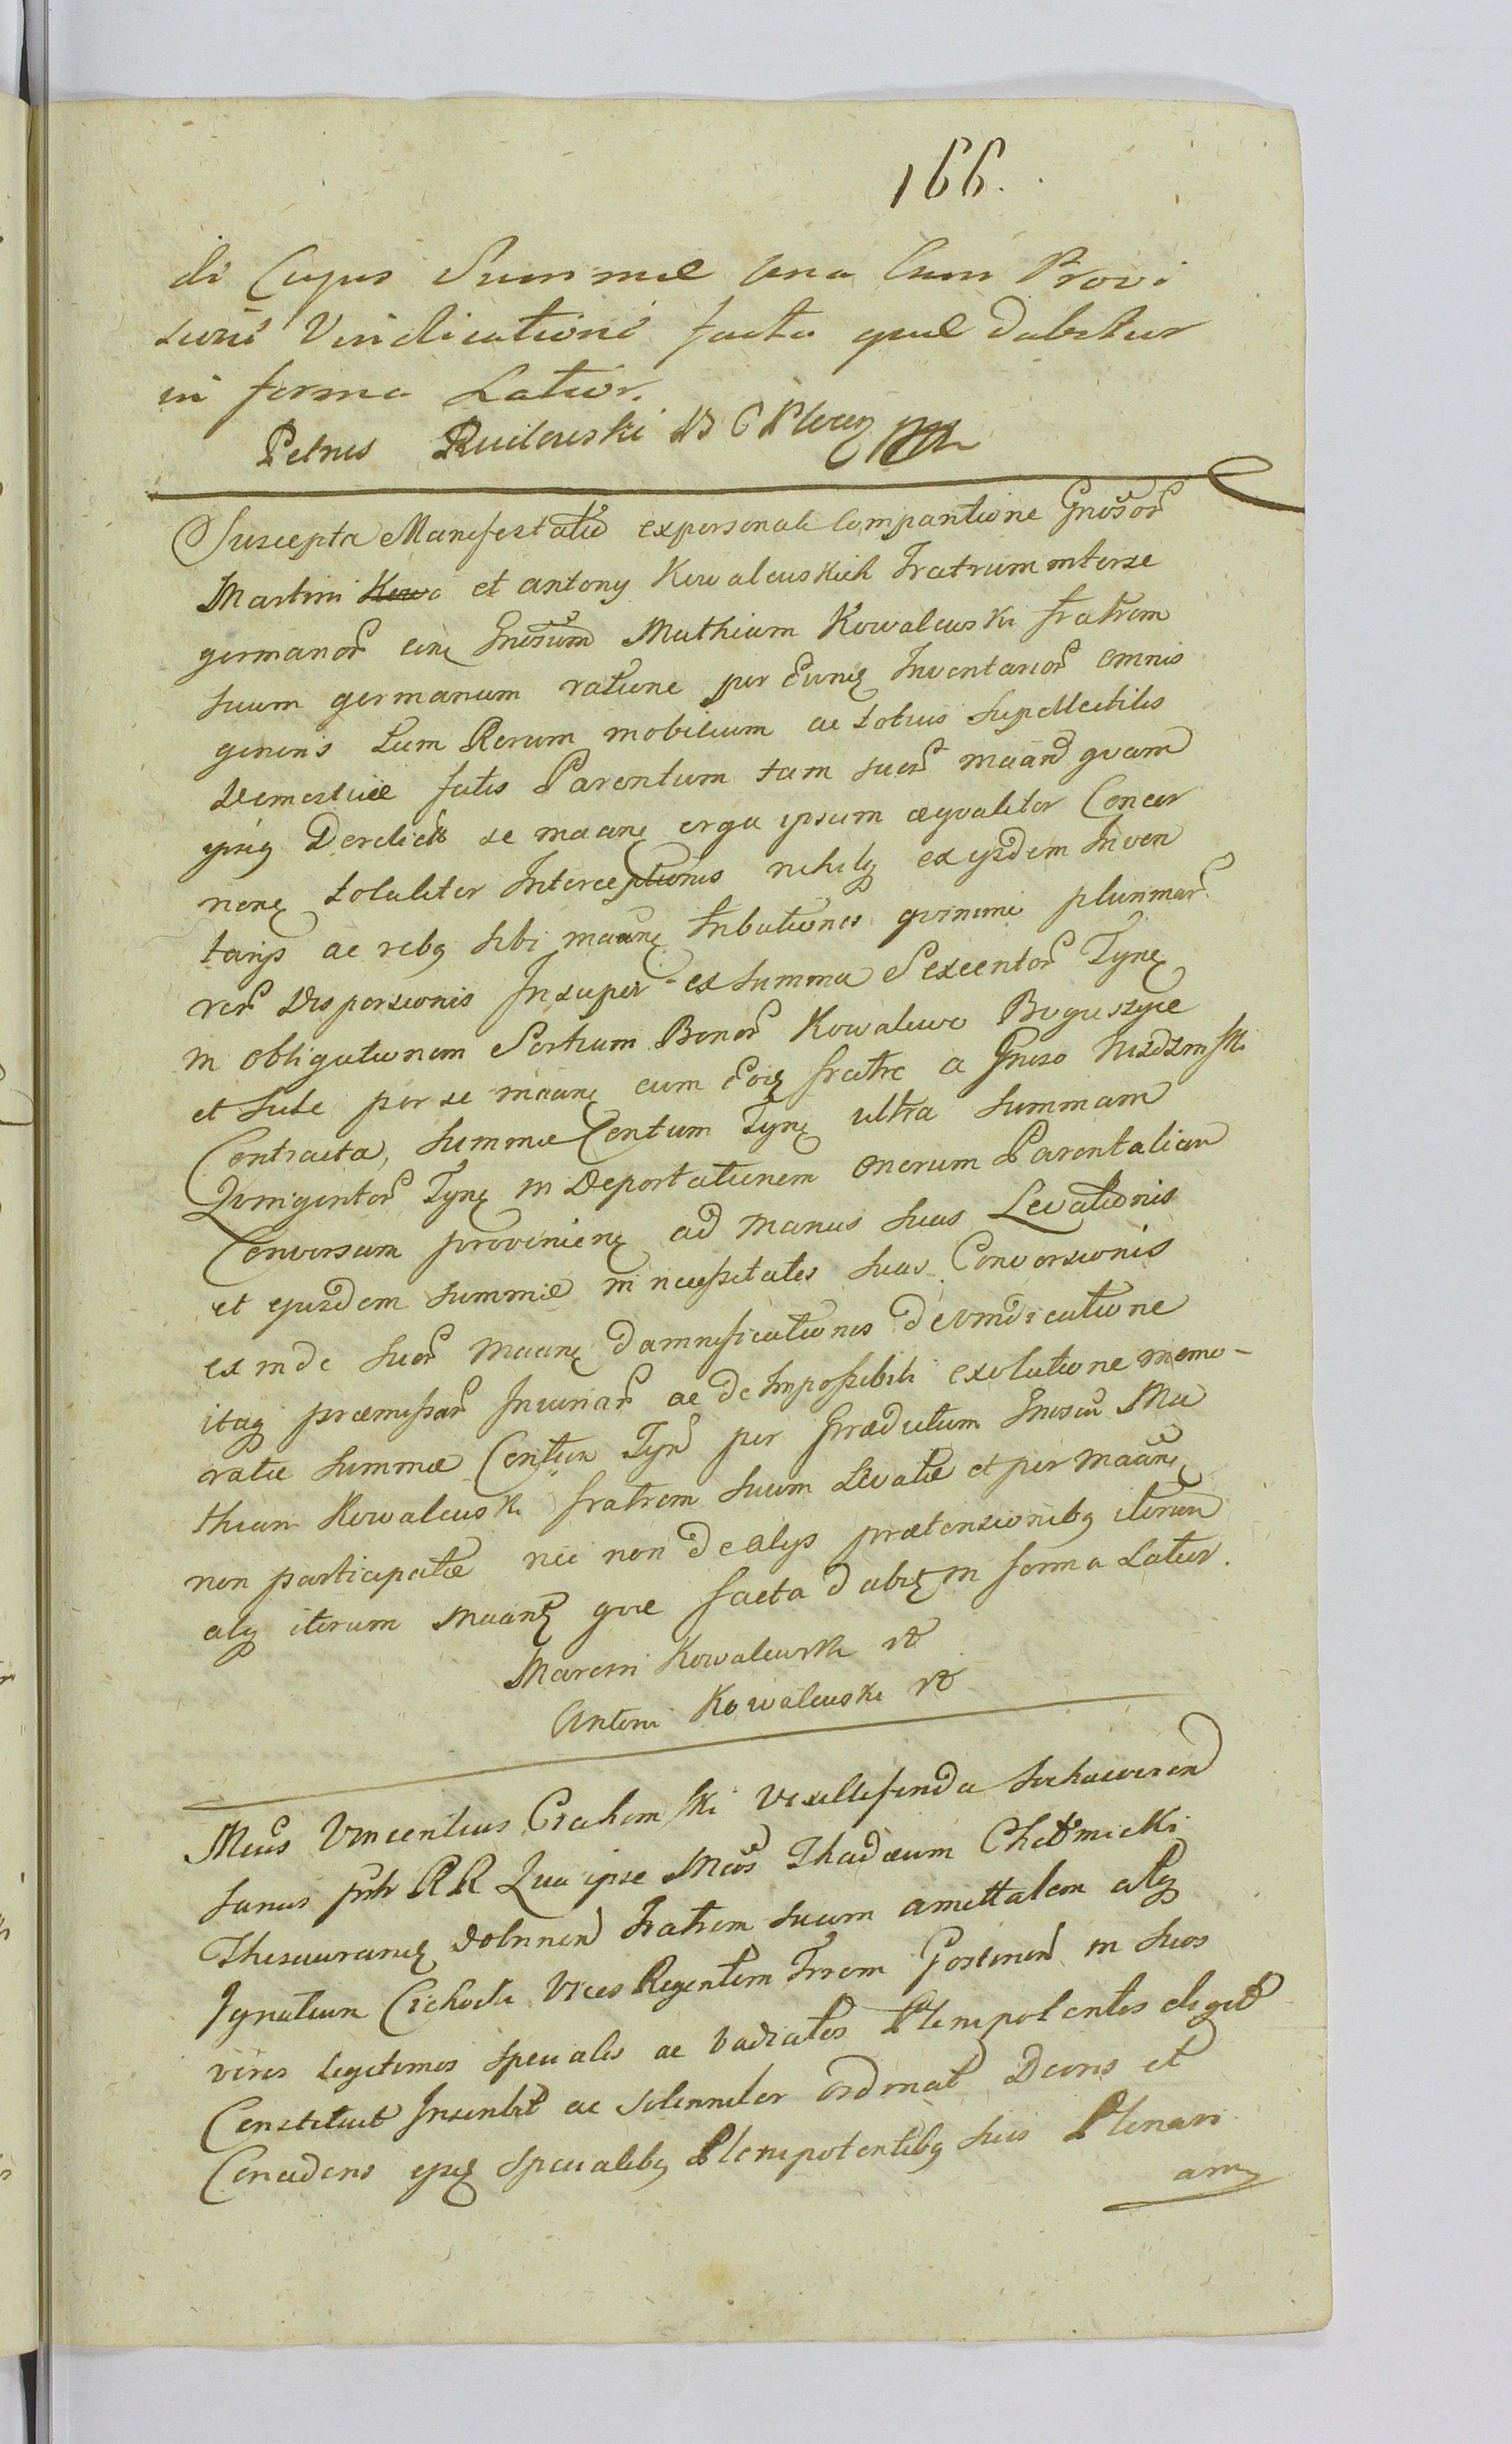 166.
di Cujus Summæ una Cum Provi
sione Vindicatione facta quæ dabitur
in forma Latior.
Petrus Rudowski
Suscepta Manifestatio ex personali Comparitione Gnosor
Martini et antony Kowalewskich Fratrum inter se
germanor cire Gnosum Mathiam Kowalewski fratrem
suum germanum ratione per Eunq Inventarior omnis
generis tum Rerum mobilium ac totius Supellectilis
Domesticæ fatis Parentum tam suor maan quam
ipsiq Derelict se maane erga ipsum æqvaliter Concer
nenq totaliter Interceptionis nihilq ex ijsdem Inven
tarijs ac rebq sibi maane tributionis qvinimi plurimar
rer Dispersionis Insuper ex Summa Sexcentor Tynq
in obligationem Sortium Bonor Kowalewo Boguszyce
et Sute per se maane cum Eoq fratre a Gnoso
Contracta, Summæ Centum Tynq ultra Summam
Qvingentor Tynq in Deportationem onerum Parentalium
Conversam provenienq ad manus suas Levationis
et ejusdem Summæ in necessitates suas Conversionis
ex inde suor maane damnificationis de vindicatione
itaq præmissar Iniuriar ac de Impossibili exolutione memo-
ratæ Summæ Centum Tyn per Prædictum Gnosum Ma
thiam Kowalewski fratrem suum Levatæ et per maane
non participatæ nec non de alijs prætensionibq iterum
atq iterum Maanq qvæ facta dabiq in forma Latior.
Marcin Kowalewski
Antoni Kowalewski
Mcus Vincentius Vexillifer
Qua ipse Mcos Thadæum
Thesaurariq Dobrinen Fratrem suum amittalem atq
Ignatium Cichocki Vices Regentem Trrem Gostinen in suos
viros legitimos speciales ac Plenipotentes eligit
Constituit Inscribit ac solenniter ordinat Dans et
Concedens ipsq Specialibq Plenipotentibq suis Plenari
am